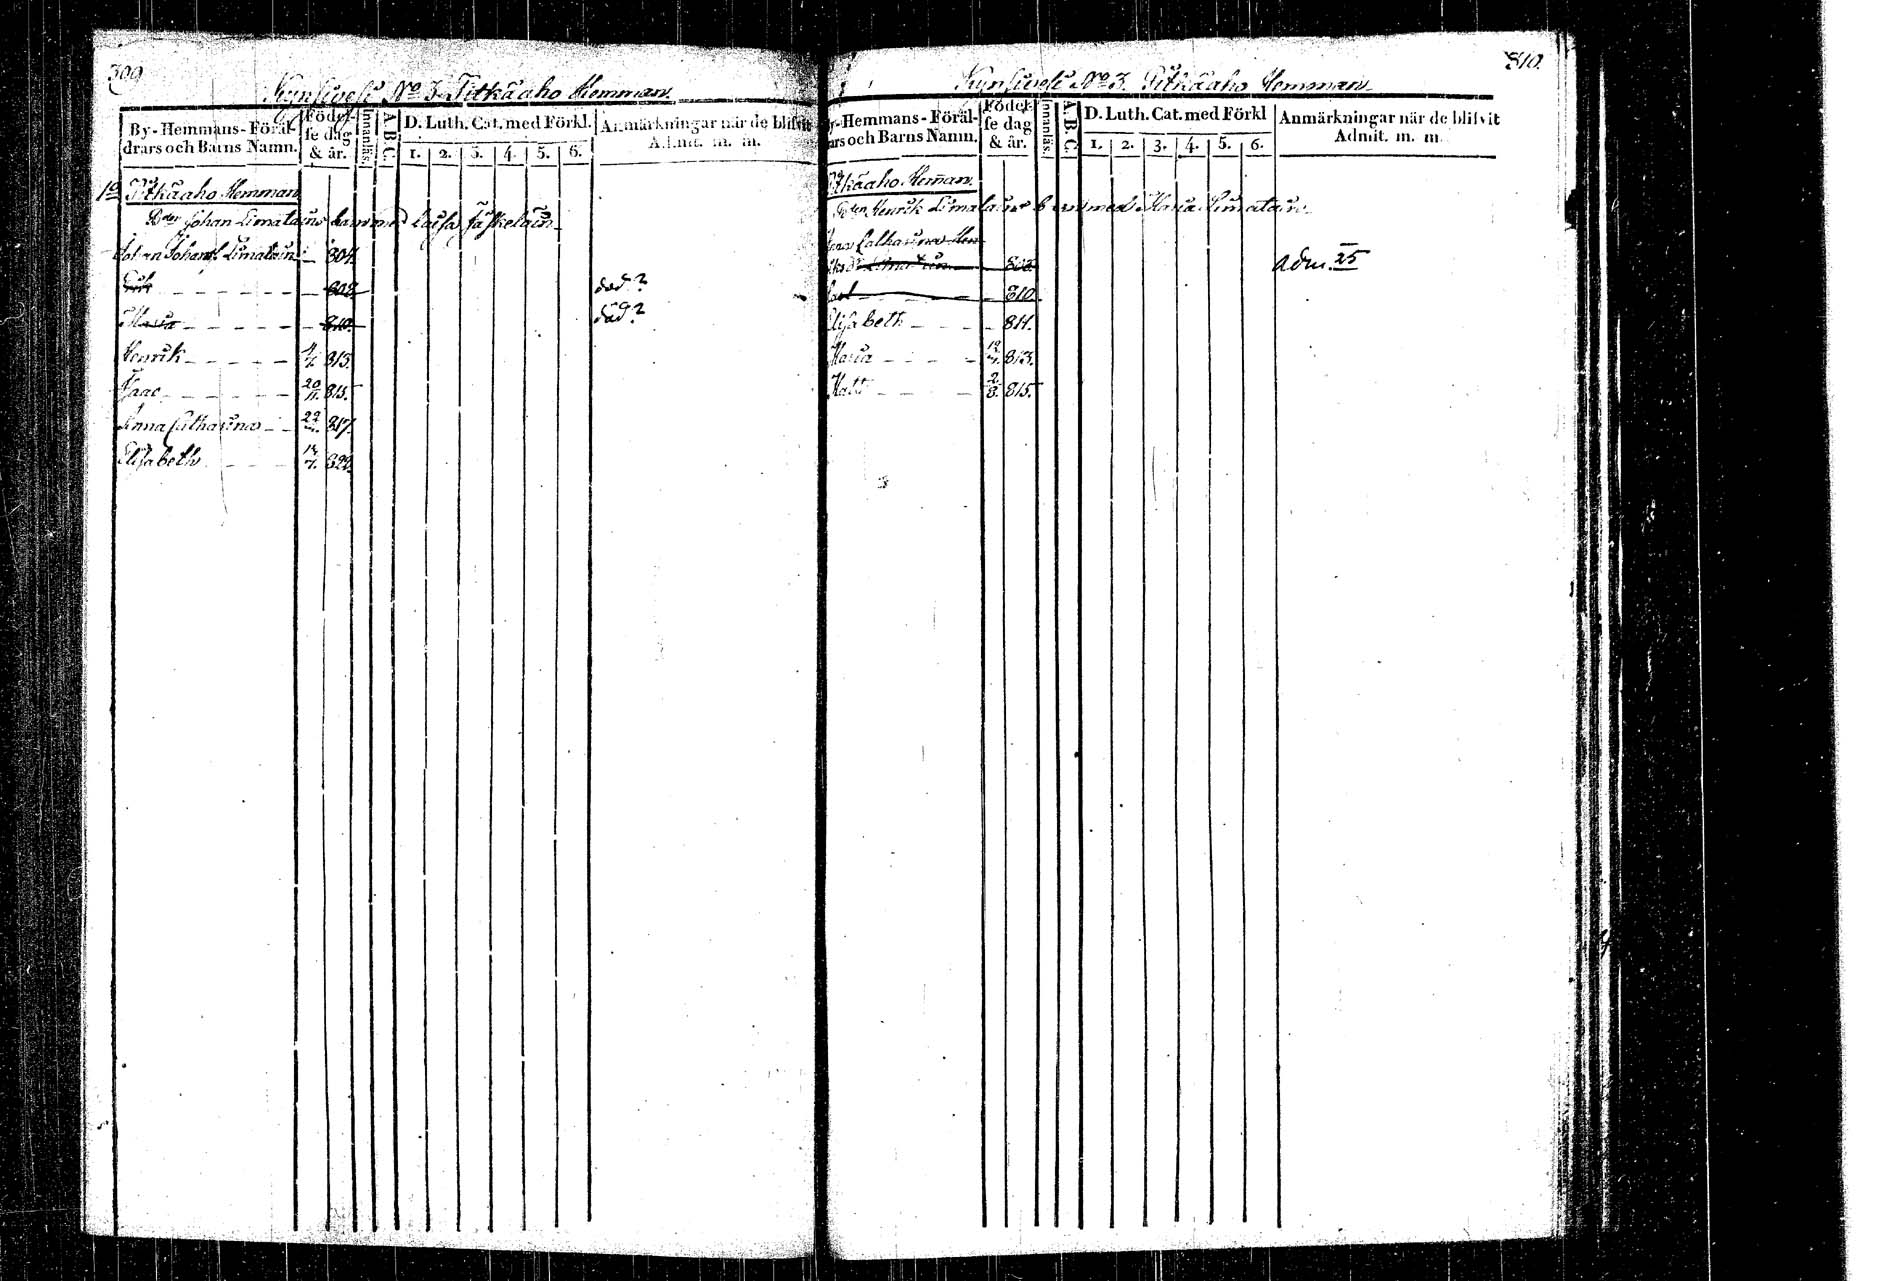 309
Kynsivesi No 3. Pitkäaho Hemman.
By-Hemmans-Föräl-
drars och Barns Namn.
Födel-
se dag
& år.
Innanläs.
A. B. C.
D. Luth. Cat. med Förkl.
1. 2. 3. 4. 5. 6.
Anmärkningar när de blifvit
Admit. m. m.
10 Pitkäaho Hemman
Bden Johan Limatains barn med Caisa Jäskelain
Johan Johans. Limatain 804.
808 död?
Maria 810. död?
Henrik 813.
Isaac 20/11. 815.
Anna Catharina 817.
Elisabeth 822.
310.
Kynsivesi No 3. Pitkäaho Hemman
By-Hemmans-Föräl-
drars och Barns Namn.
Födel-
se dag
& år.
Innanläs.
A. B. C.
D. Luth. Cat. med Förkl
1. 2. 3. 4. 5. 6.
Anmärkningar när de blifvit
Admit. m. m.
Pitkäaho Heman.
Bden Henrik Limatains barn med Maria Limatain
Anna Catharina Hen
Limatain Adm. 25
810.
Elisabeth 811.
Maria 813.
Matts 2/8. 815.